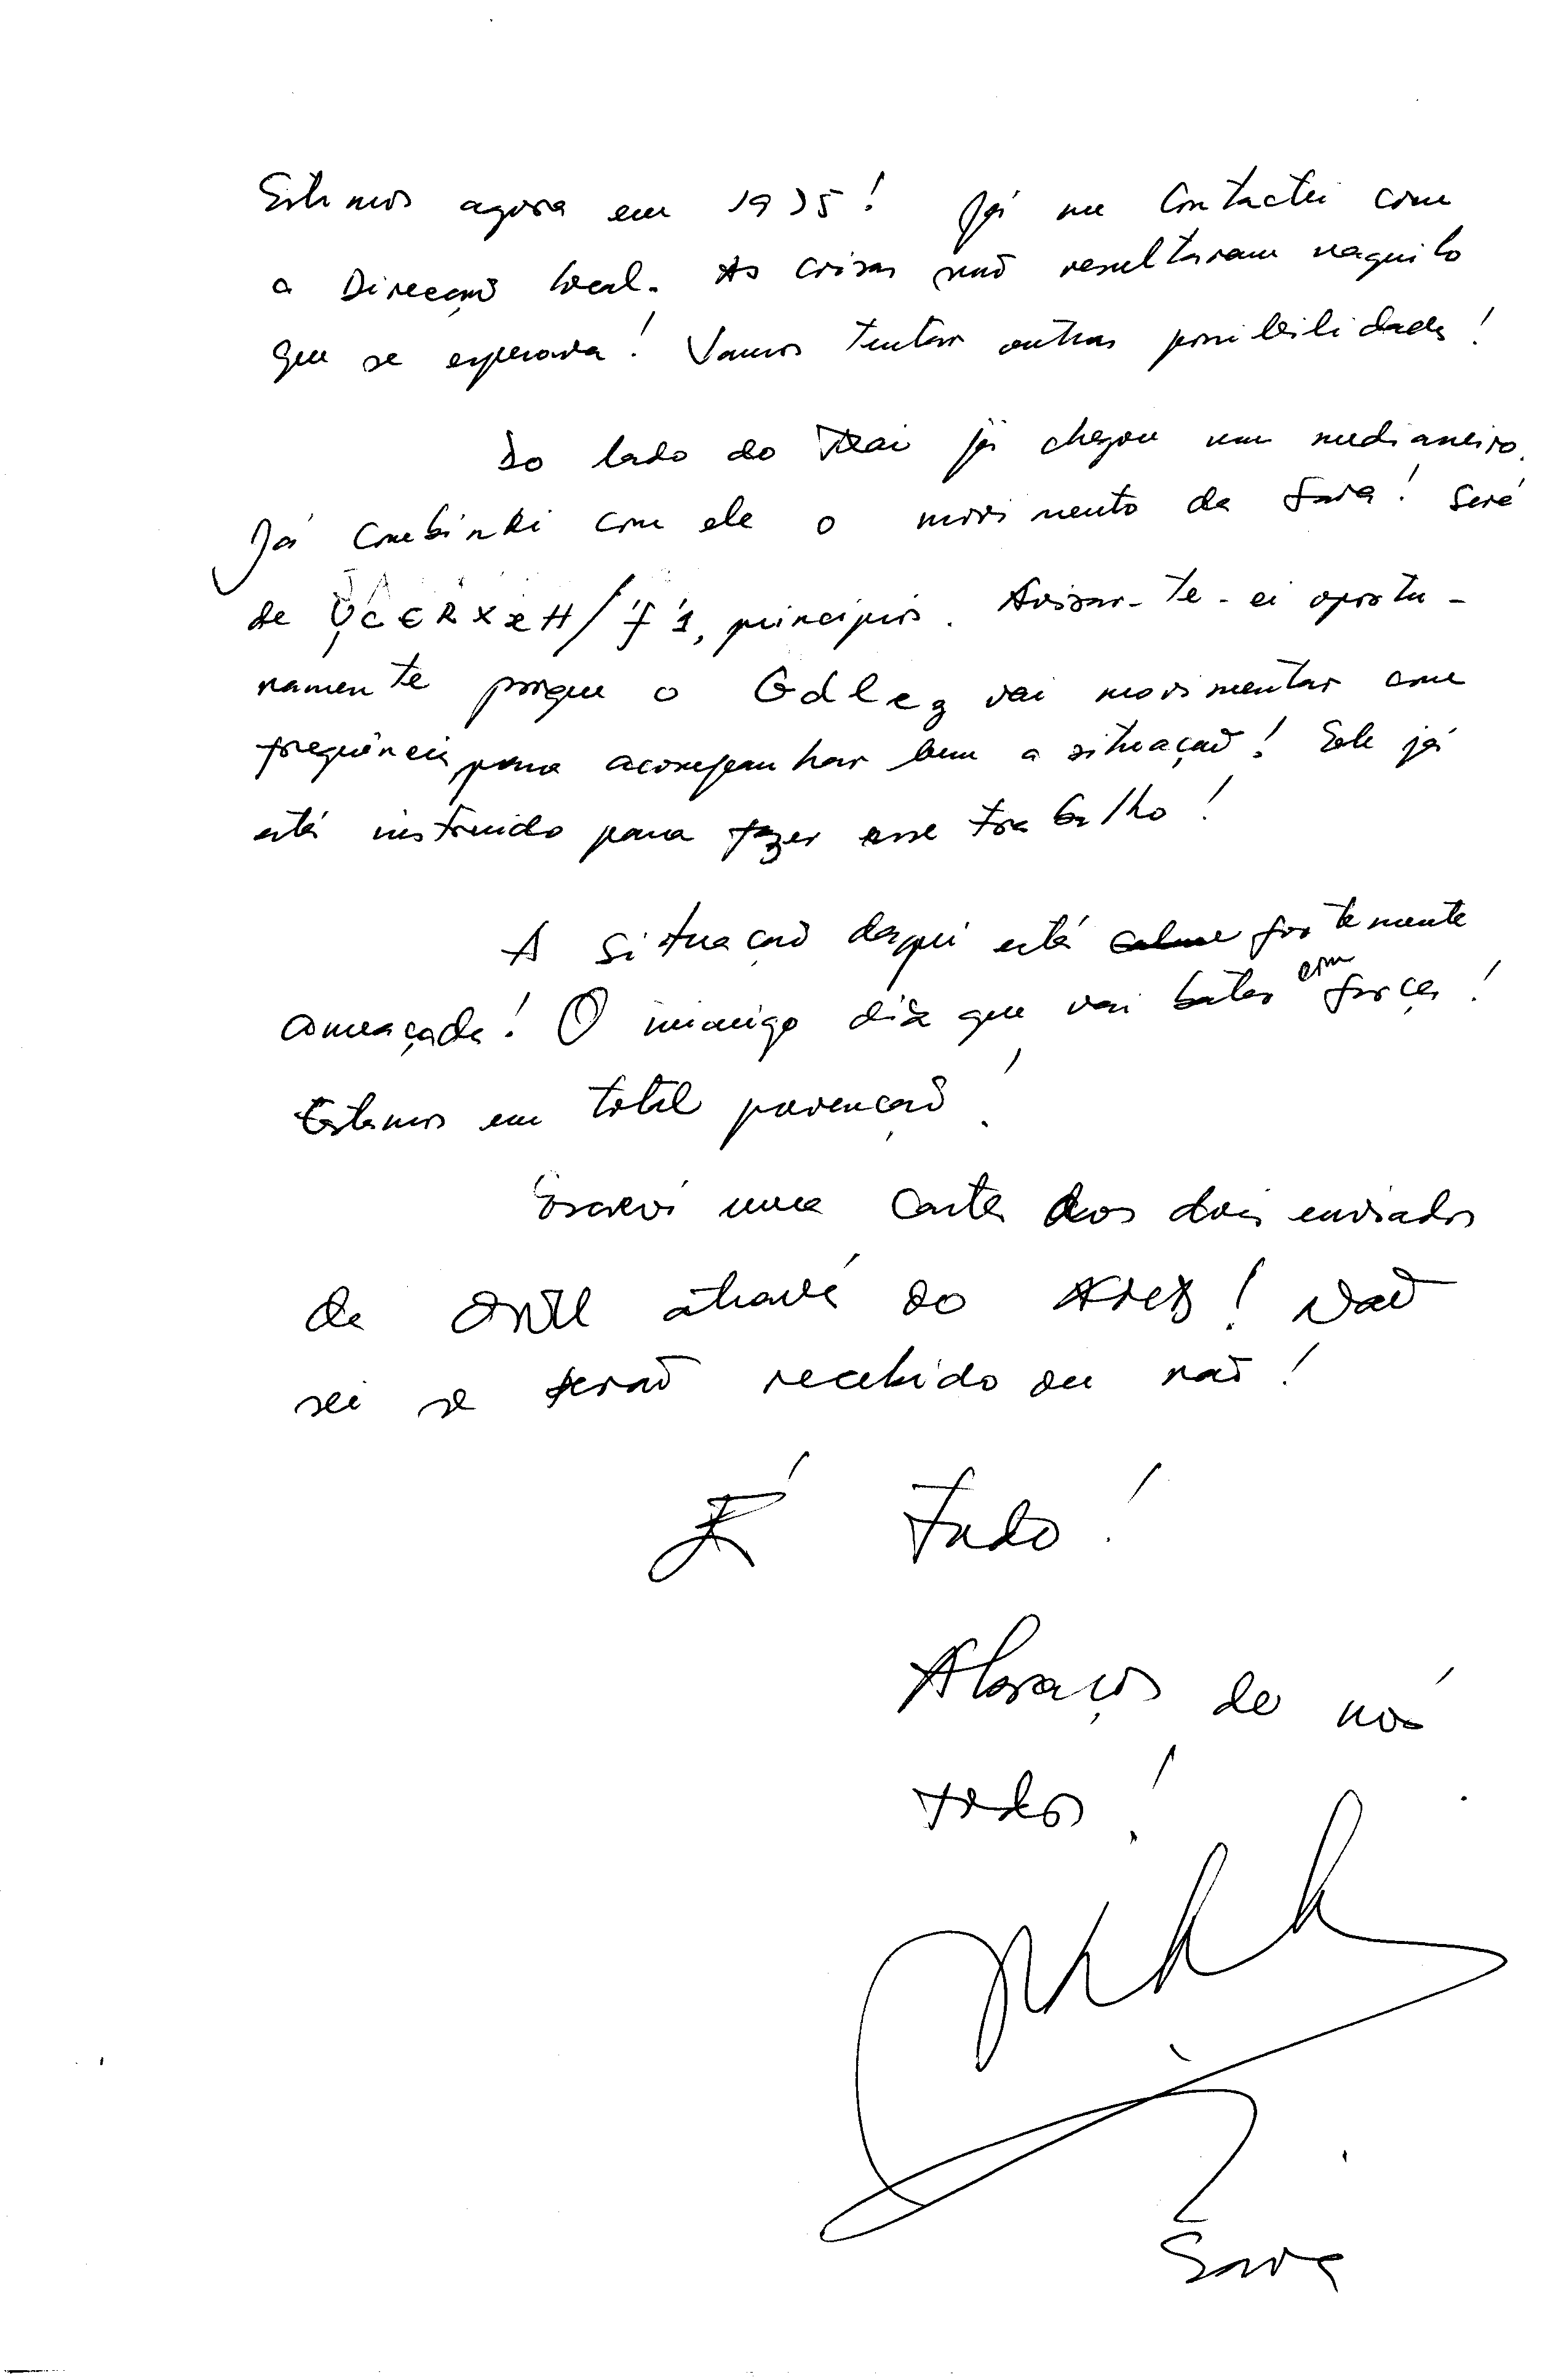 Estamos agora em 1995! Já me contactei com
a Direcção local. As coisas não resultaram naquilo
que se esperava! Vamos tentar outras possibilidades!
Do lado do já chegou um medianeiro.
Já combinei com ele o movimento da Sara! Será
de princípios. Avisar-te-ei oportu-
namente porque o vai movimentar com
frequência para acompanhar bem a situação! Ele já
está instruido para fazer esse trabalho!
A Situação daqui está fortemente
ameaçada! O inimigo diz que vai bater com força!
Estamos em total prevenção!
Escrevi uma carta aos dois enviados
da através do ! Não
sei se serão recebido ou não!
É tudo!
Abraços de nós
todos!
Sara